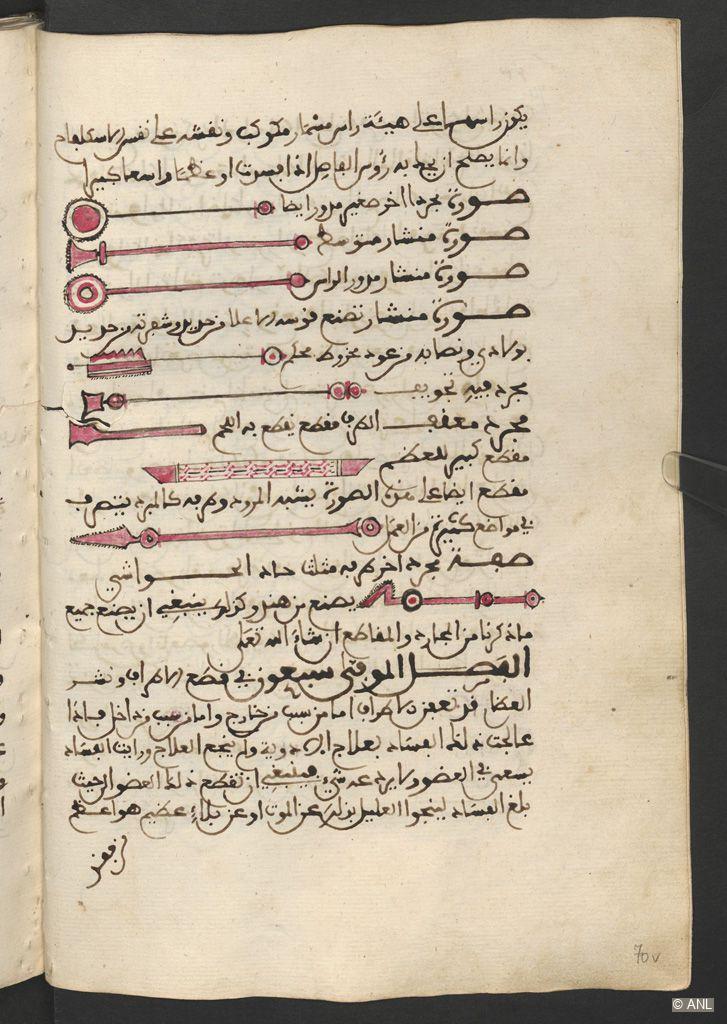 يكون راسها على هيئة راس مسمار مكوكب ونقشه على نفس الاسكلفاج
وانما يصلح ان يحك به رؤوس المفاصل اذا فسدت او عظما واسعا كبيرا
صورة مجرد اخر صغير مدور ايضا
صورة منشار متوسط
صورة منشار مدور الراس
صورة منشار تصنع قوسه الاعلا من حديد وشفرته من حديد
بولادي ونصابه من عود مخروط محكم
مجرد فيه تجويف
مجرد معقف الطرف مقطع يقطع به اللحم
مقطع كبير للعظم
مقطع ايضا على هذه الصورة يشبه المرود وطرفه كالمبرد يتصرف
في مواضع كثيرة من العمل
صفة مجرد اخر طرفه مثلث حاد الحواشي
يصنع من هند وكذلك ينبغي ان يصنع جميع
ما ذكرنا من المجارد والمقاطع ان شاء الله تعلى
الفصل الموفي سبعون في قطع الاطراف ونشر
العظام قد تعفن الاطراف اما من سبب من خارج واما من سبب من داخل فاذا
عالجت ذلك الفساد بعلاج الادوية ولم ينجع العلاج ورايت الفساد
يسعى في العضو لا يرده عنه شيء فينبغي ان تقطع ذلك العضو الى حيث
بلغ الفساد لينجوا العليل بذلك عن الموت او عن بلاء عظيم هو اعظم
من فقد
70v
© ANL